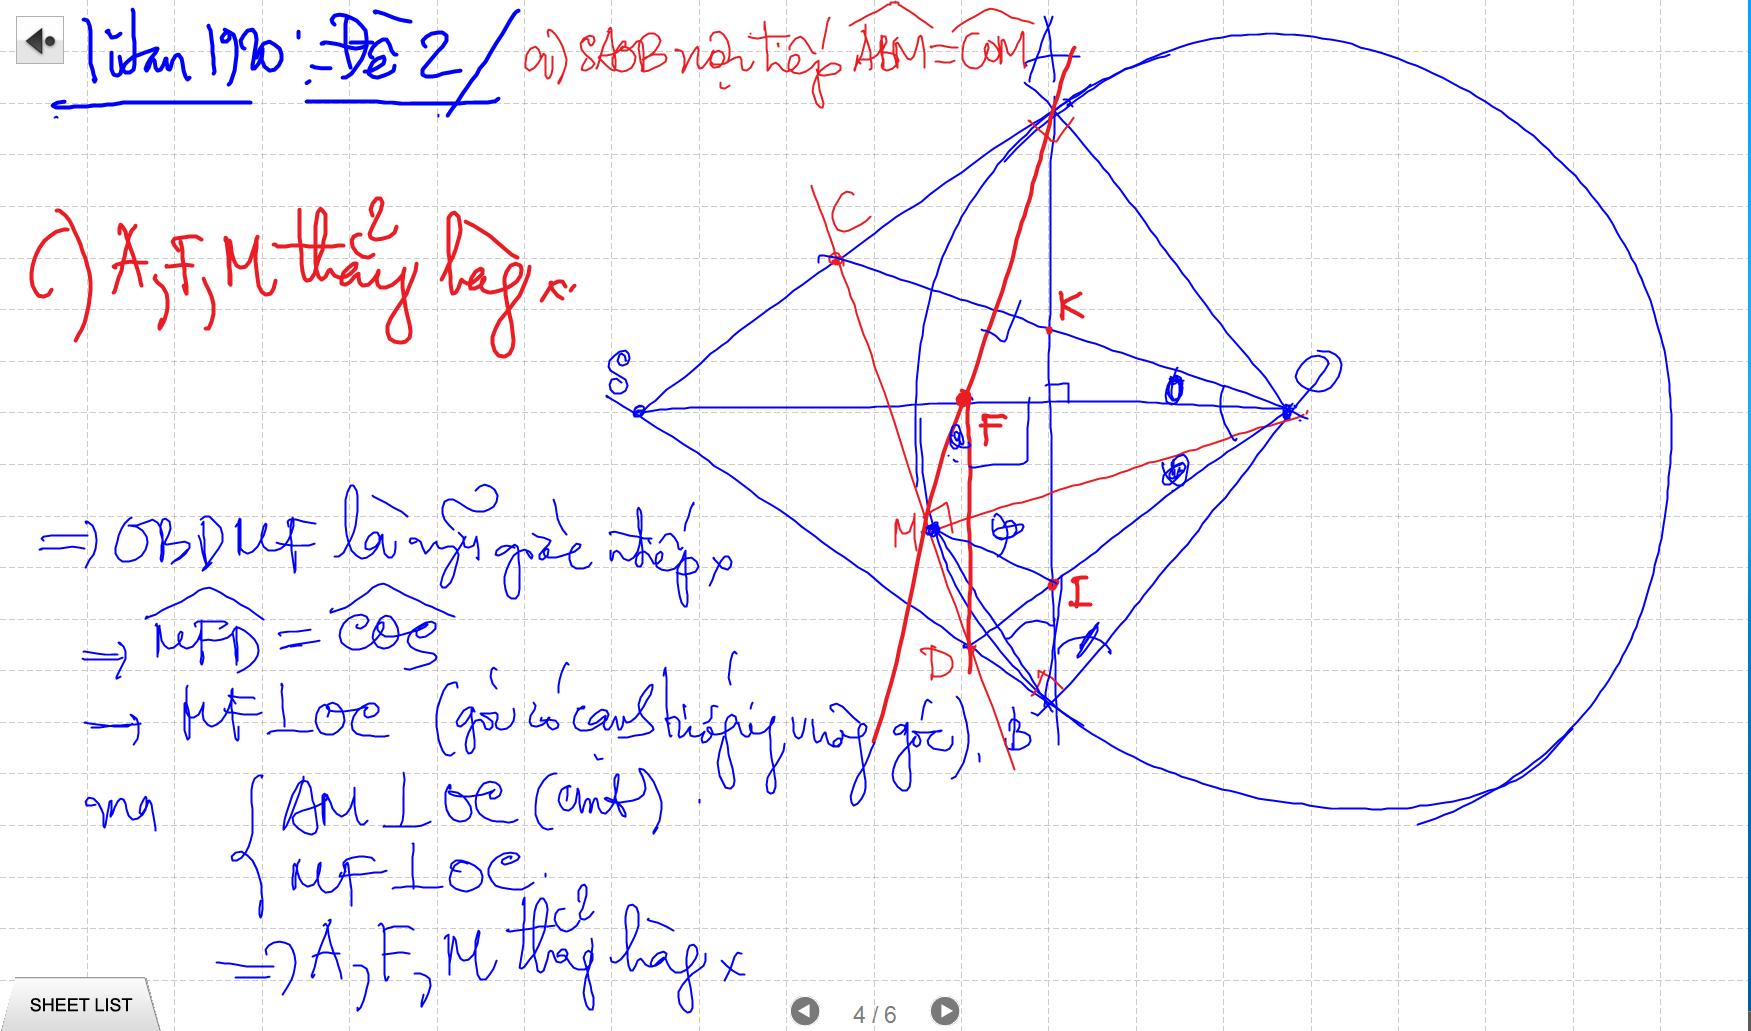 1920: Đề 2
a) SAOB nội tiếp ABM = COM
c) A, F, M thẳng hàng
C
K
S
O
F
M
I
D
B
=> OBDMF là ngũ giác nt tiếp
=> MFD = COS
→ MF ⊥ OC (góc có cạnh vuông góc).
mà
AM ⊥ OC (cmt).
MF ⊥ OC.
=> A, F, M thẳng hàng
SHEET LIST
4 / 6